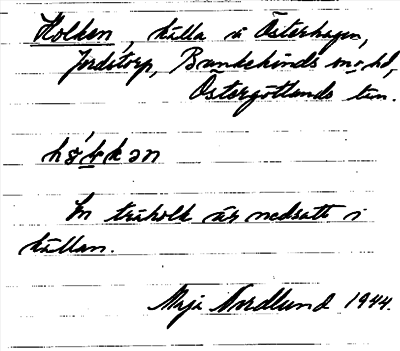 Holken, källa i Österhagen,
Jordstorp, Brunskinds sn o. hd,
Östergötlands län.
hɔ́lkən
En träholk är nedsatt i
källan.
Maja Nordlund 1944.